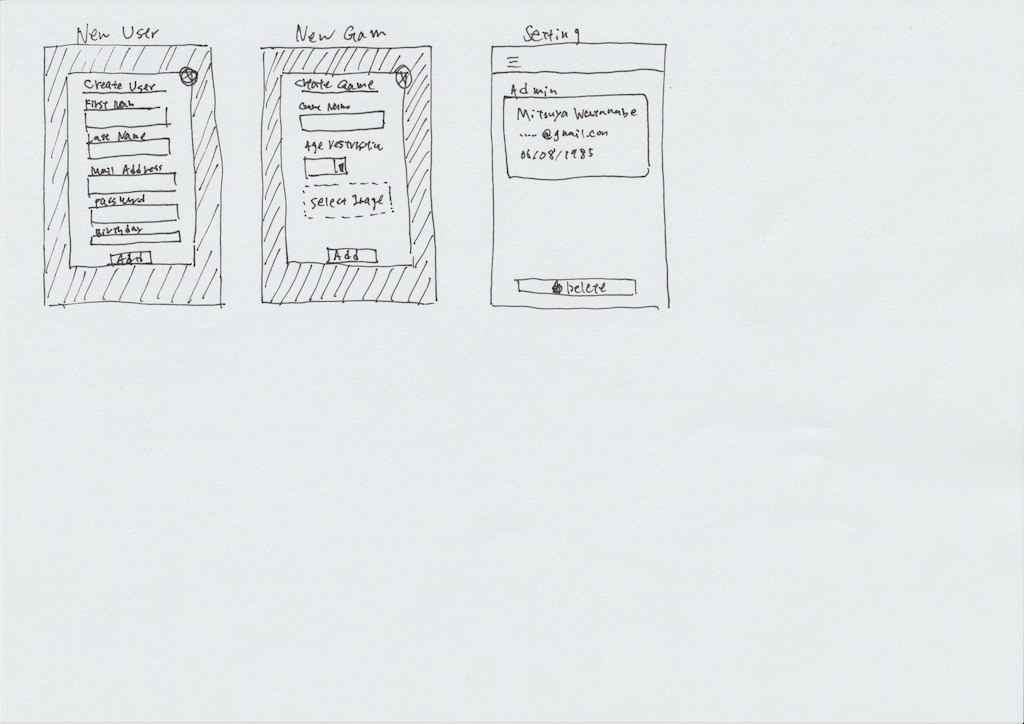 New User
Create User
First Nam
Last Name
Mail Address
Password
Birthday
Add
New Gam
Create Game
Game Name
Age restrictio
Select Image
Add
Setting
Admin
Mitsuya Watanabe
.... @gmail.com
06/08/1985
Delete